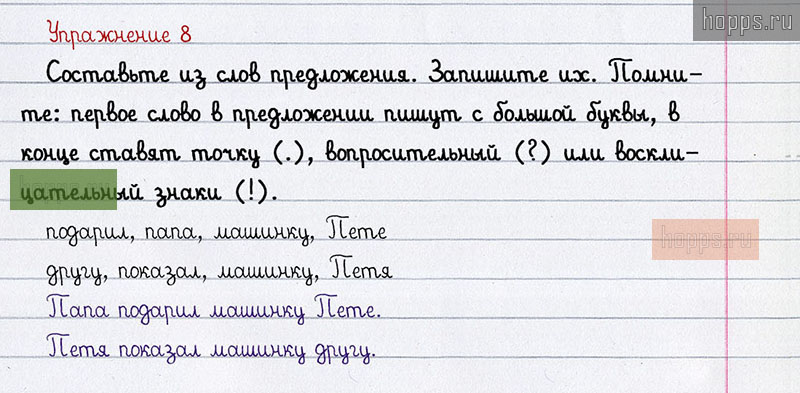 hopps.ru
Упражнение 8
Составьте из слов предложения. Запишите их. Помни-
те: первое слово в предложении пишут с большой буквы, в
конце ставят точку (.), вопросительный (?) или воскли-
цательный знаки (!).
подарил, папа, машинку, Пете
hopps.ru
другу, показал, машинку, Петя
Папа подарил машинку Пете.
Петя показал машинку другу.